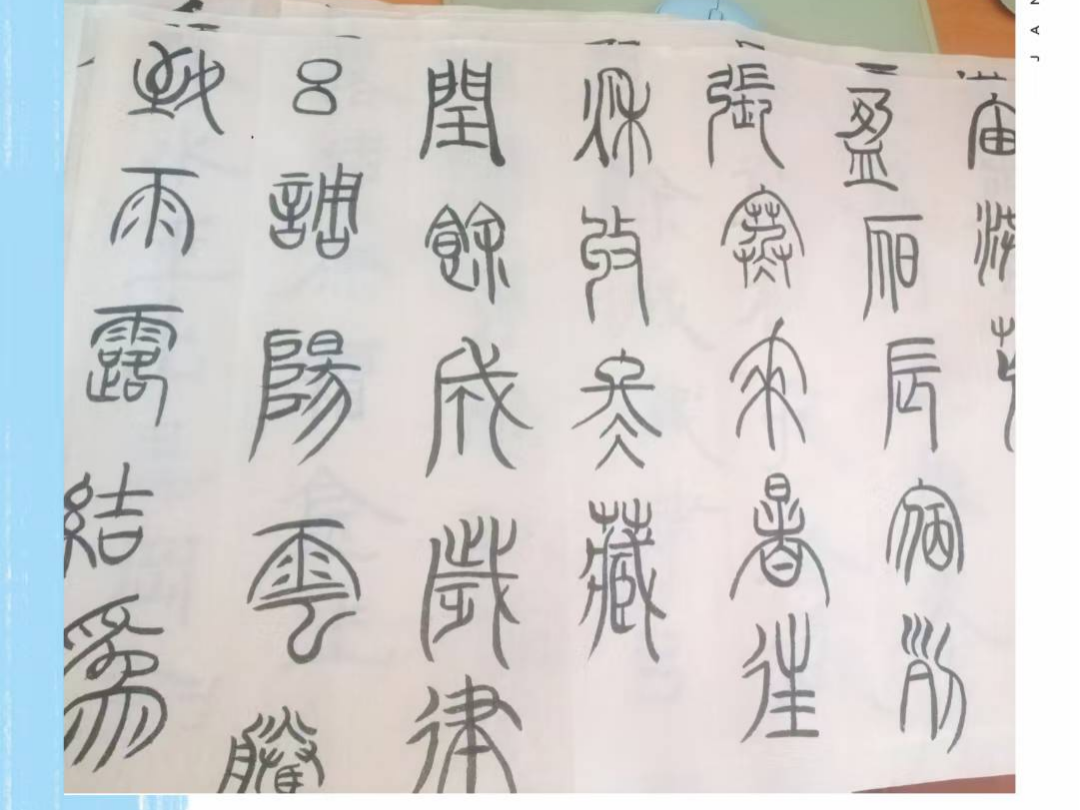 宙洪荒
盈昃辰宿列
張寒來暑往
秋收冬藏
閏餘成歲律
呂調陽雲騰
致雨露結為
JAN